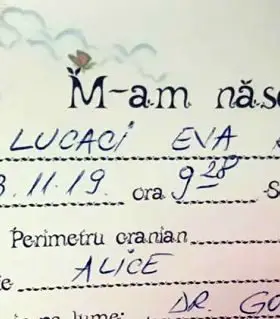 M-am năs
LUCACI EVA
3.11.19. ora 9 28 S
Perimetru cranian
e ALICE
pe lume: DR. GU